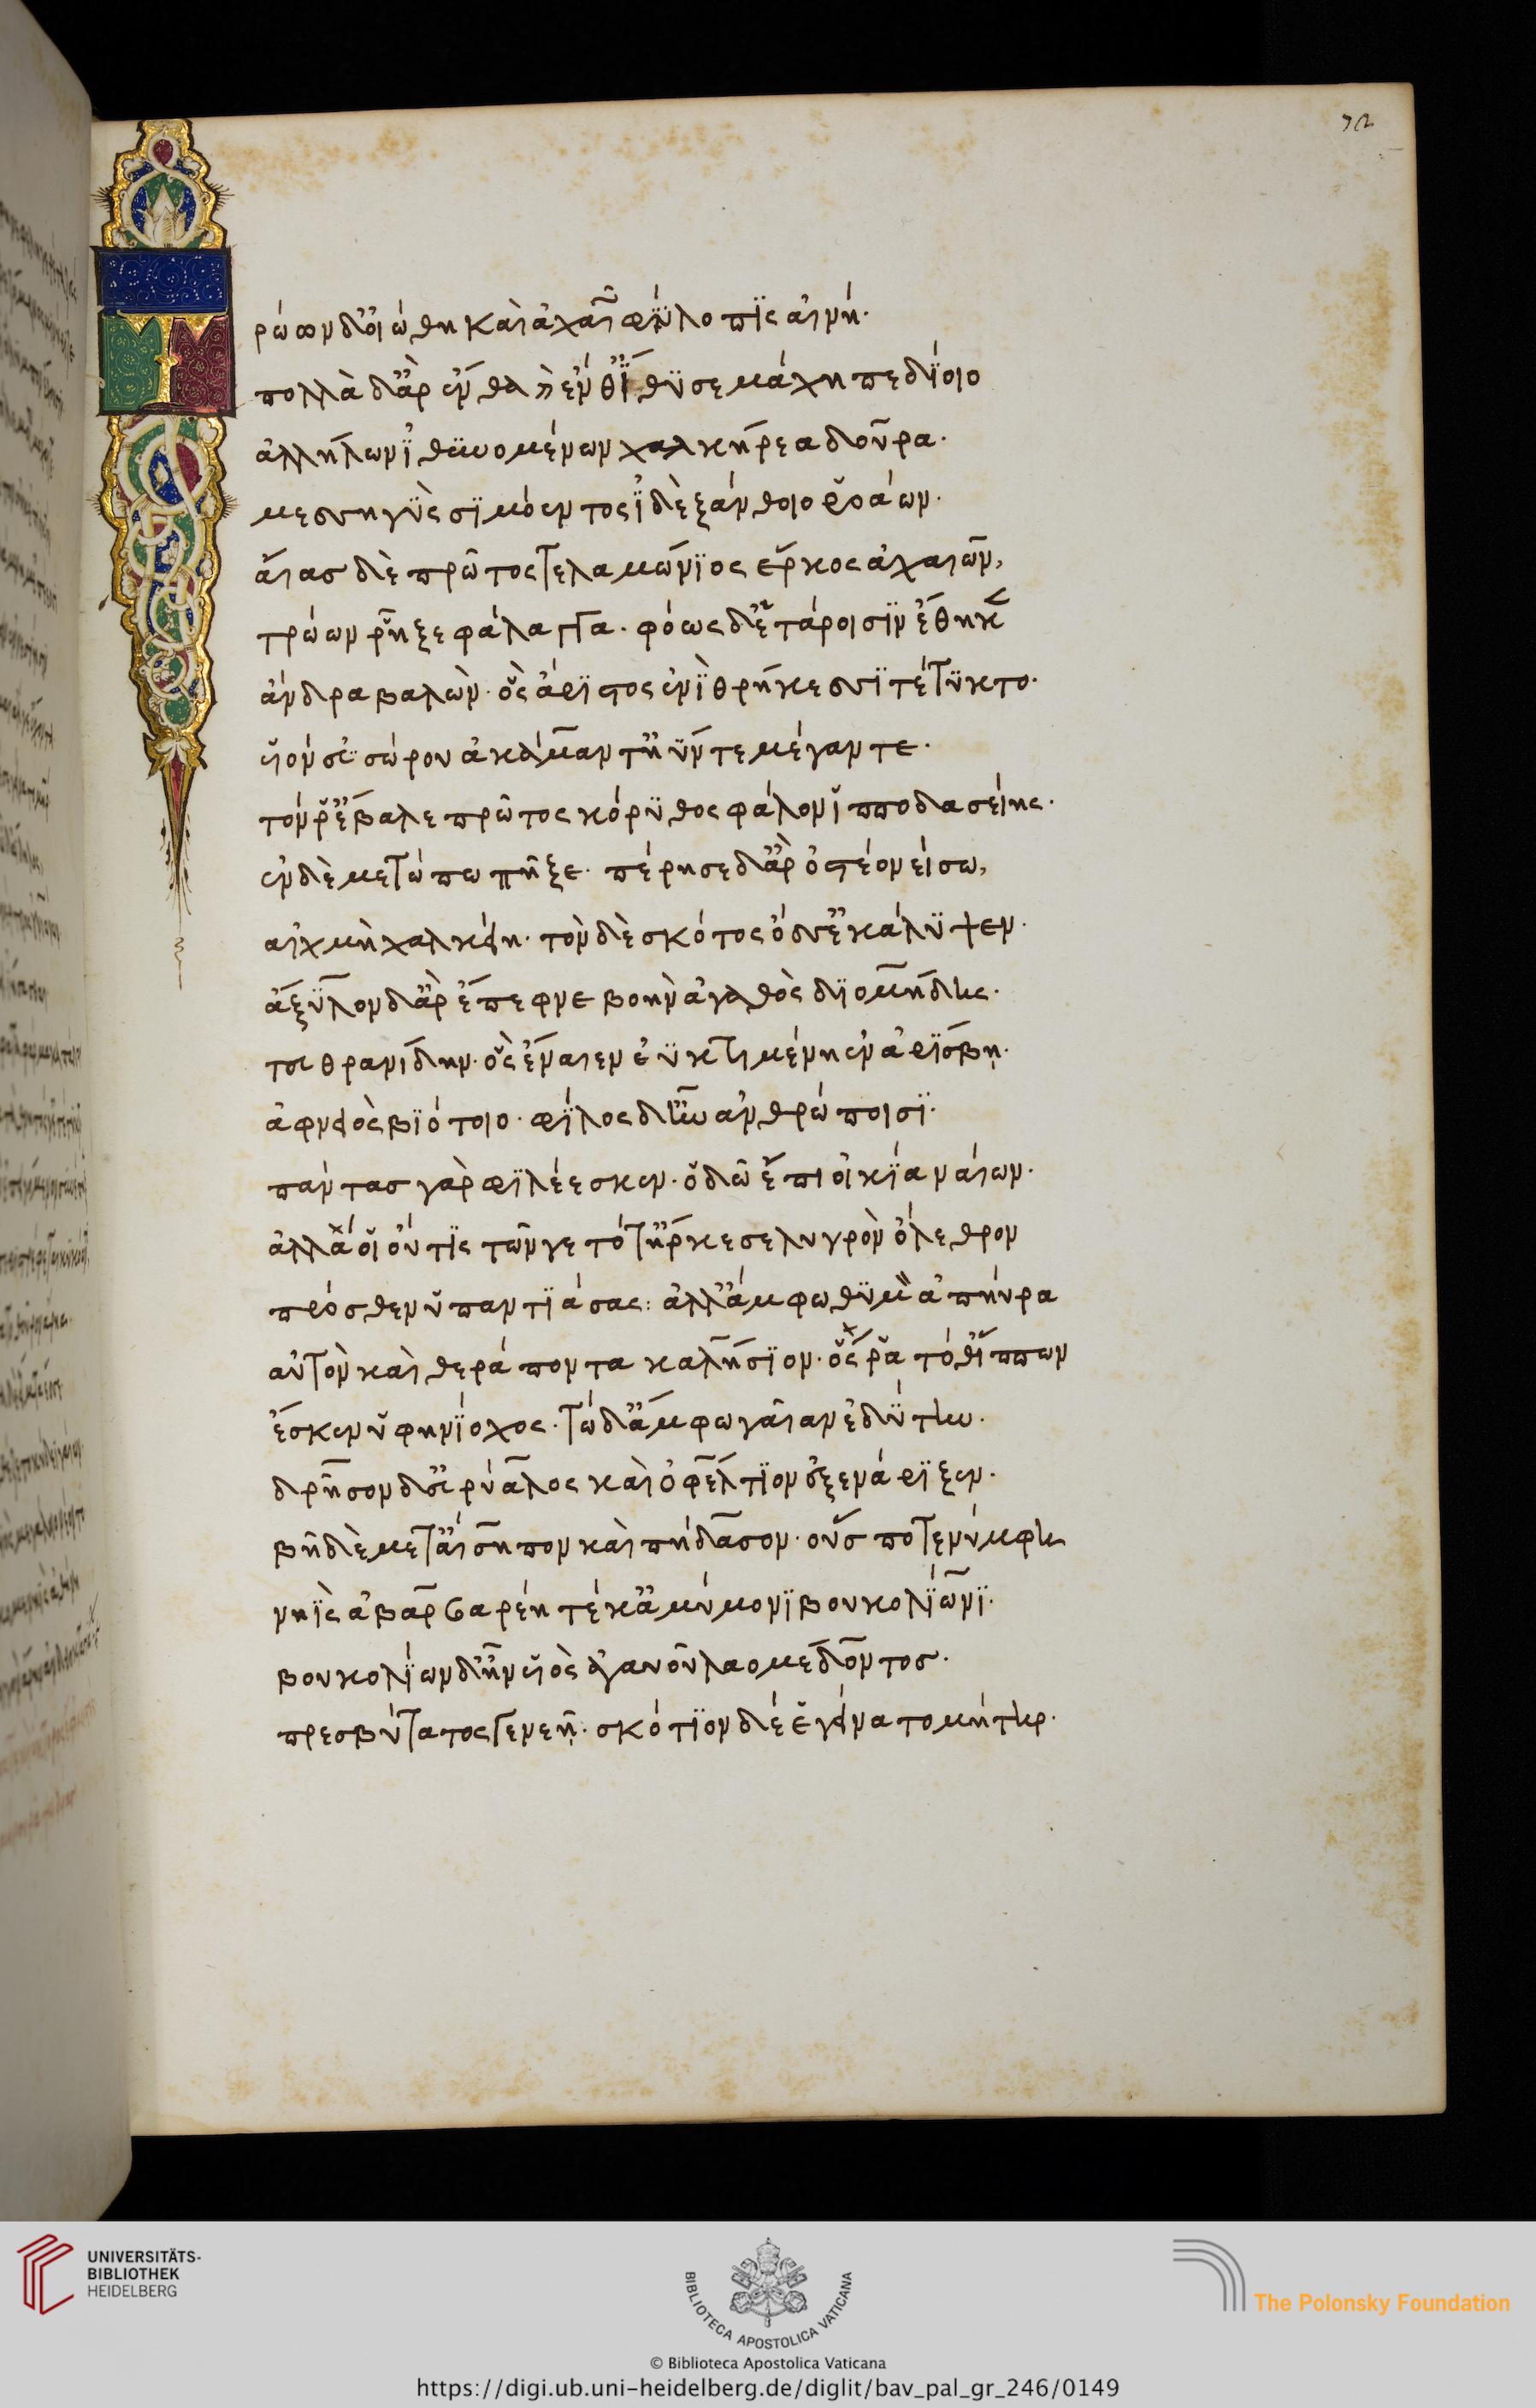 72
Τρώων δ' οἰώθη καὶ ἀχαιῶν φύλοπις αἰνή·
πολλὰ δ' ἂρ ἔνθα καὶ ἔνθ' ἴθυσε μάχη πεδίοιο
ἀλλήλων ἰθυνομένων χαλκήρεα δοῦρα·
μεσσηγὺς σιμόεντος ἰδὲ ξάνθοιο ῥοάων·
αἴας δὲ πρῶτος τελαμώνιος ἕρκος ἀχαιῶν,
τρώων ῥῆξε φάλαγγα· φόως δ' ἑτάροισιν ἔθηκε
ἄνδρα βαλὼν· ὃς ἄριστος ἐνὶ θρήκεσσι τέτυκτο·
υἱόν εὐσώρου ἀκάμαντ' ἠΰν τε μέγαν τε·
τόν ῥ' ἔβαλε πρῶτος κόρυθος φάλον ἱπποδασείης·
ἐν δὲ μετώπω πῆξε· πέρησε δ' ἂρ ὀστέον εἴσω,
αἰχμὴ χαλκείη· τὸν δὲ σκότος ὄσσ' ἐκάλυψεν·
ἄξυλον δ' ἂρ ἔπεφνε βοὴν ἀγαθὸς διομήδης·
τευθρανίδην· ὃς ἔναιεν ἐϋκτιμένη ἐν ἀρίσβη·
ἀφνειὸς βιότοιο· φίλος δ' ἦν ἀνθρώποισι·
πάντας γὰρ φιλέεσκεν· ὁδῶ ἔπι οἰκία ναίων·
ἀλλά οἱ οὔτις τῶν γε τότ' ἤρκεσε λυγρὸν ὄλεθρον
πρόσθεν ὑπαντιάσας: ἀλλ' ἄμφω θυμὸν ἀπηύρα
αὐτὸν καὶ θεράποντα καλήσιον· ὅς ῥα τόθ' ἵππων
ἔσκεν ὑφηνίοχος· τὼ δ' ἄμφω γαῖαν ἐδύτην·
δρῆσον δ' εὐρύαλος καὶ ὀφέλτιον ἐξενάριξεν·
βῆ δὲ μετ' αἴσηπον καὶ πήδασον· οὕς ποτε νύμφη
νηῒς ἀβαρβαρέη τέκ' ἀμύμονι βουκολίωνι·
βουκολίων δ' ἦν υἱὸς ἀγαυοῦ λαομέδοντος·
πρεσβύτατος γενεῇ· σκότιον δέ ἑ γείνατο μήτηρ·
UNIVERSITÄTS-
BIBLIOTHEK
HEIDELBERG
BIBLIOTECA APOSTOLICA VATICANA
The Polonsky Foundation
© Biblioteca Apostolica Vaticana
https://digi.ub.uni-heidelberg.de/diglit/bav_pal_gr_246/0149